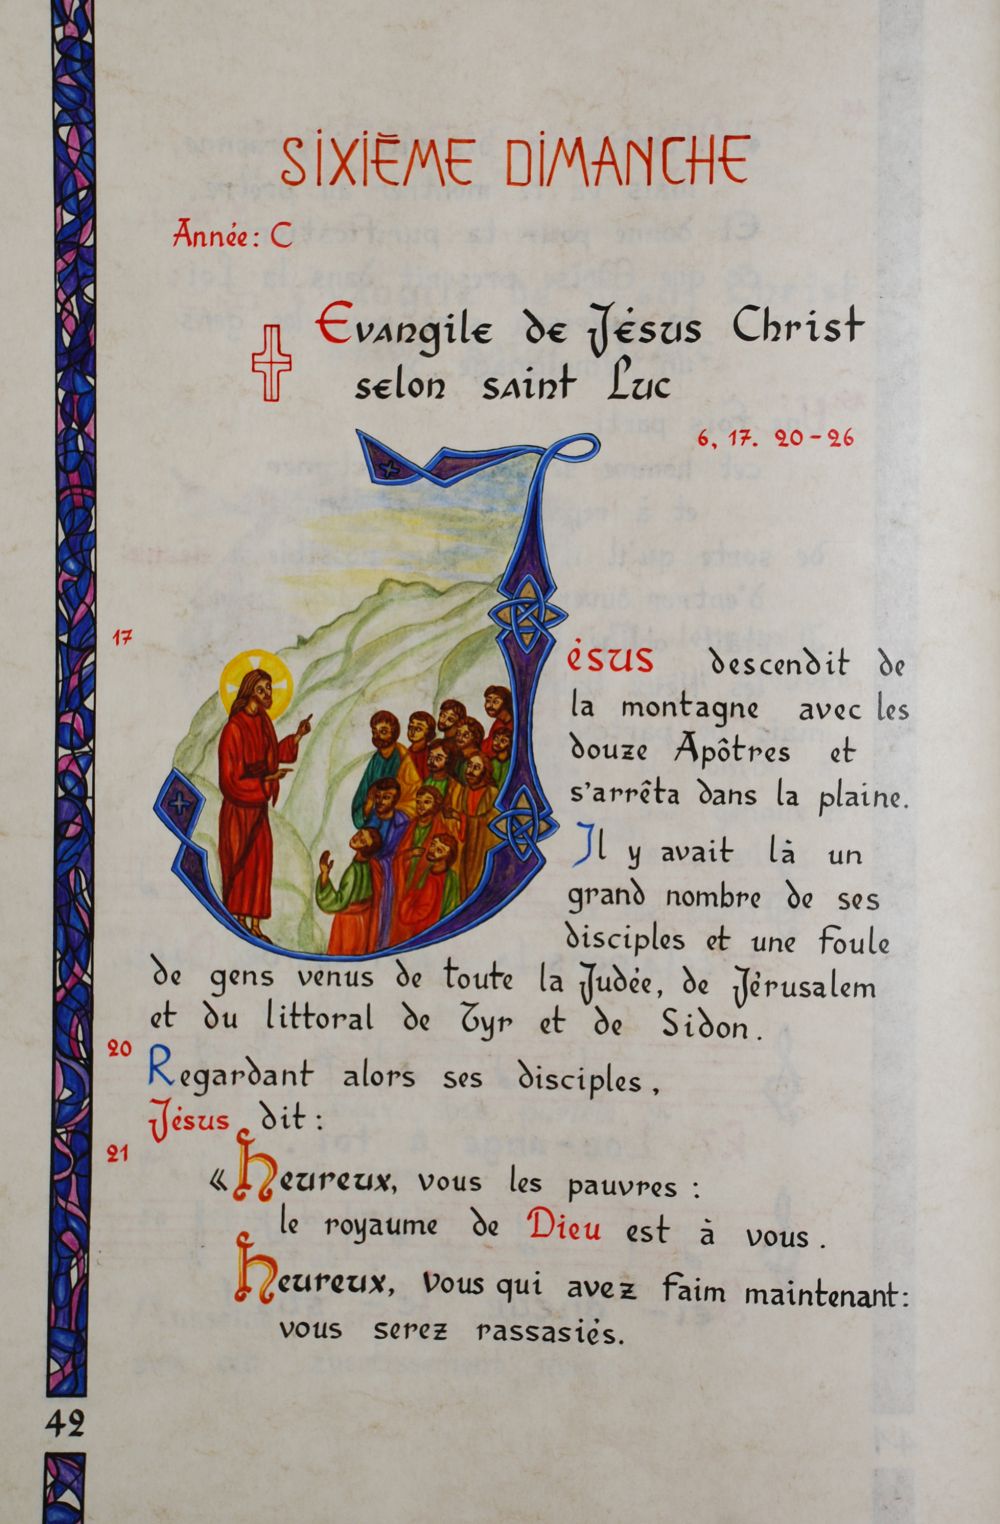 SIXIÈME DIMANCHE
Année: C
Evangile de Jésus Christ
selon saint Luc
6, 17. 20-26
17
Jésus descendit de
la montagne avec les
douze Apôtres et
s'arrêta dans la plaine.
Il y avait là un
grand nombre de ses
disciples et une foule
de gens venus de toute la Judée, de Jérusalem
et du littoral de Tyr et de Sidon.
20
Regardant alors ses disciples,
Jésus dit :
21
« heureux, vous les pauvres :
le royaume de Dieu est à vous.
heureux, vous qui avez faim maintenant:
vous serez rassasiés.
42